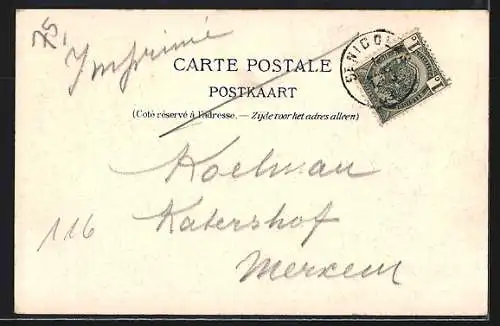 75,
Imprimé
CARTE POSTALE
POSTKAART
(Coté réservé à l'adresse. — Zijde voor het adres alleen)
ST NICOL
1 1
Koelman
Katershof
116
Merxem